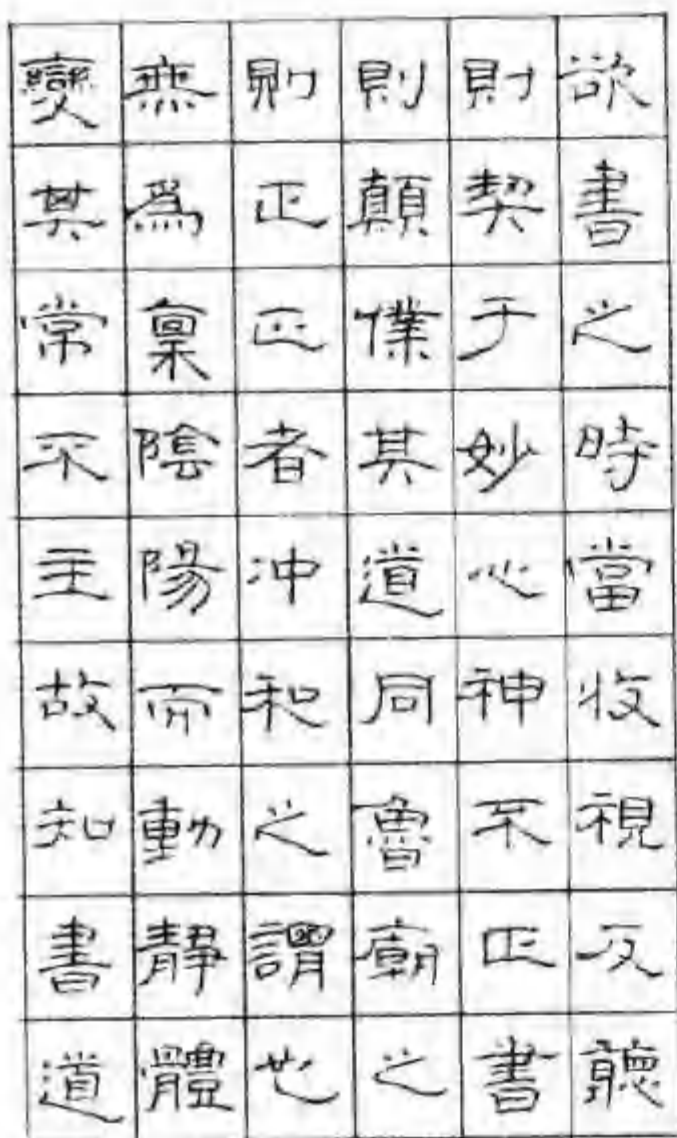 欲書之時當收視反聽
則契于妙心神不正書
則顛僕其道同魯廟之
則正正者冲和之謂也
無爲稟陰陽而動靜體
變其常不主故知書道